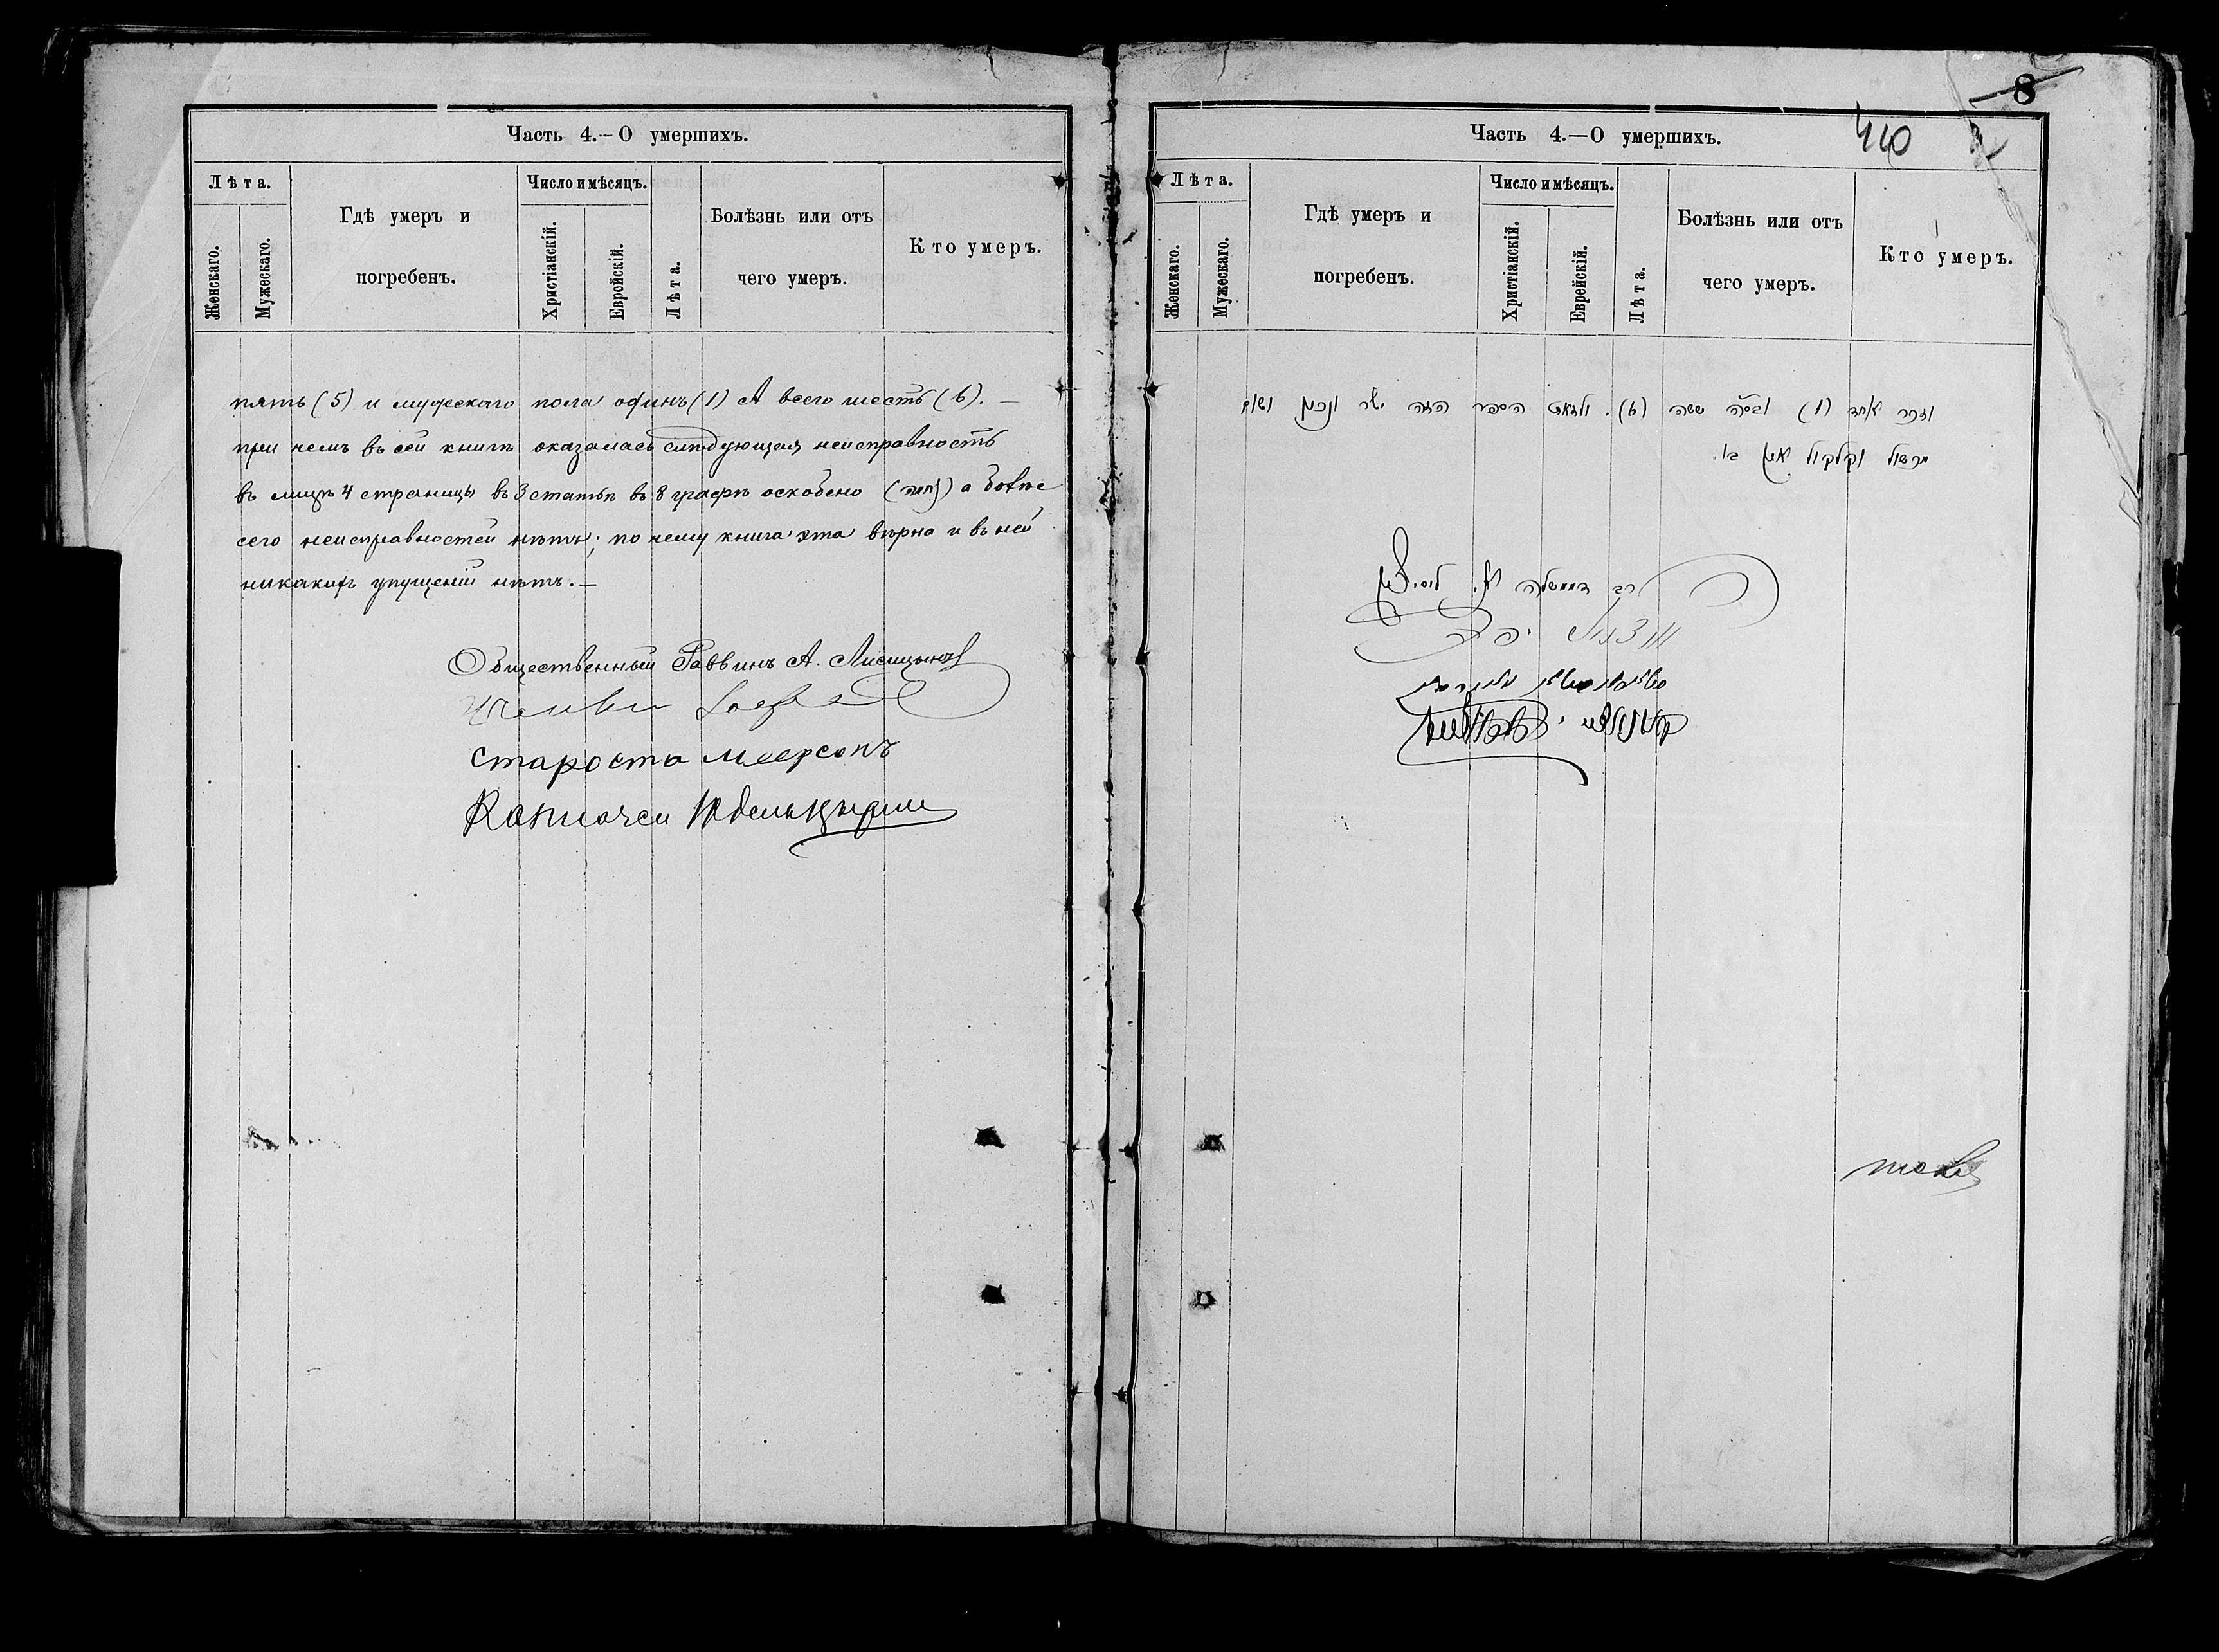 Часть 4.—О умершихъ.
Лѣта.
Женскаго.
Мужескаго.
Гдѣ умеръ и
погребенъ.
Число и мѣсяцъ.
Христіанскій.
Еврейскій.
Лѣта.
Болѣзнь или отъ
чего умеръ.
Кто умеръ.
пять (5) и мужескаго пола одинъ (1) А всего шесть (6). —
при чемъ въ сей книгѣ оказалась слѣдующая неисправность
въ лицѣ 4 страницы въ 3 статьѣ въ 8 графѣ оскоблено а болѣе
сего неисправностей нѣтъ; по чему книга эта вѣрна и въ ней
никакихъ упущеній нѣтъ. —
Общественный Раввинъ А. Лисицынъ
Староста Меерсонъ
Казначей
8
Часть 4.—О умершихъ.
440
Лѣта.
Женскаго.
Мужескаго.
Гдѣ умеръ и
погребенъ.
Число и мѣсяцъ.
Христіанскій.
Еврейскій.
Лѣта.
Болѣзнь или отъ
чего умеръ.
Кто умеръ.
וזכר אחד (1) ובס״ה ששה (6). ולזאת הספר הזה ישר ונכון ושום
מכשול וקלקול אין בו.
רב דממשלה א.